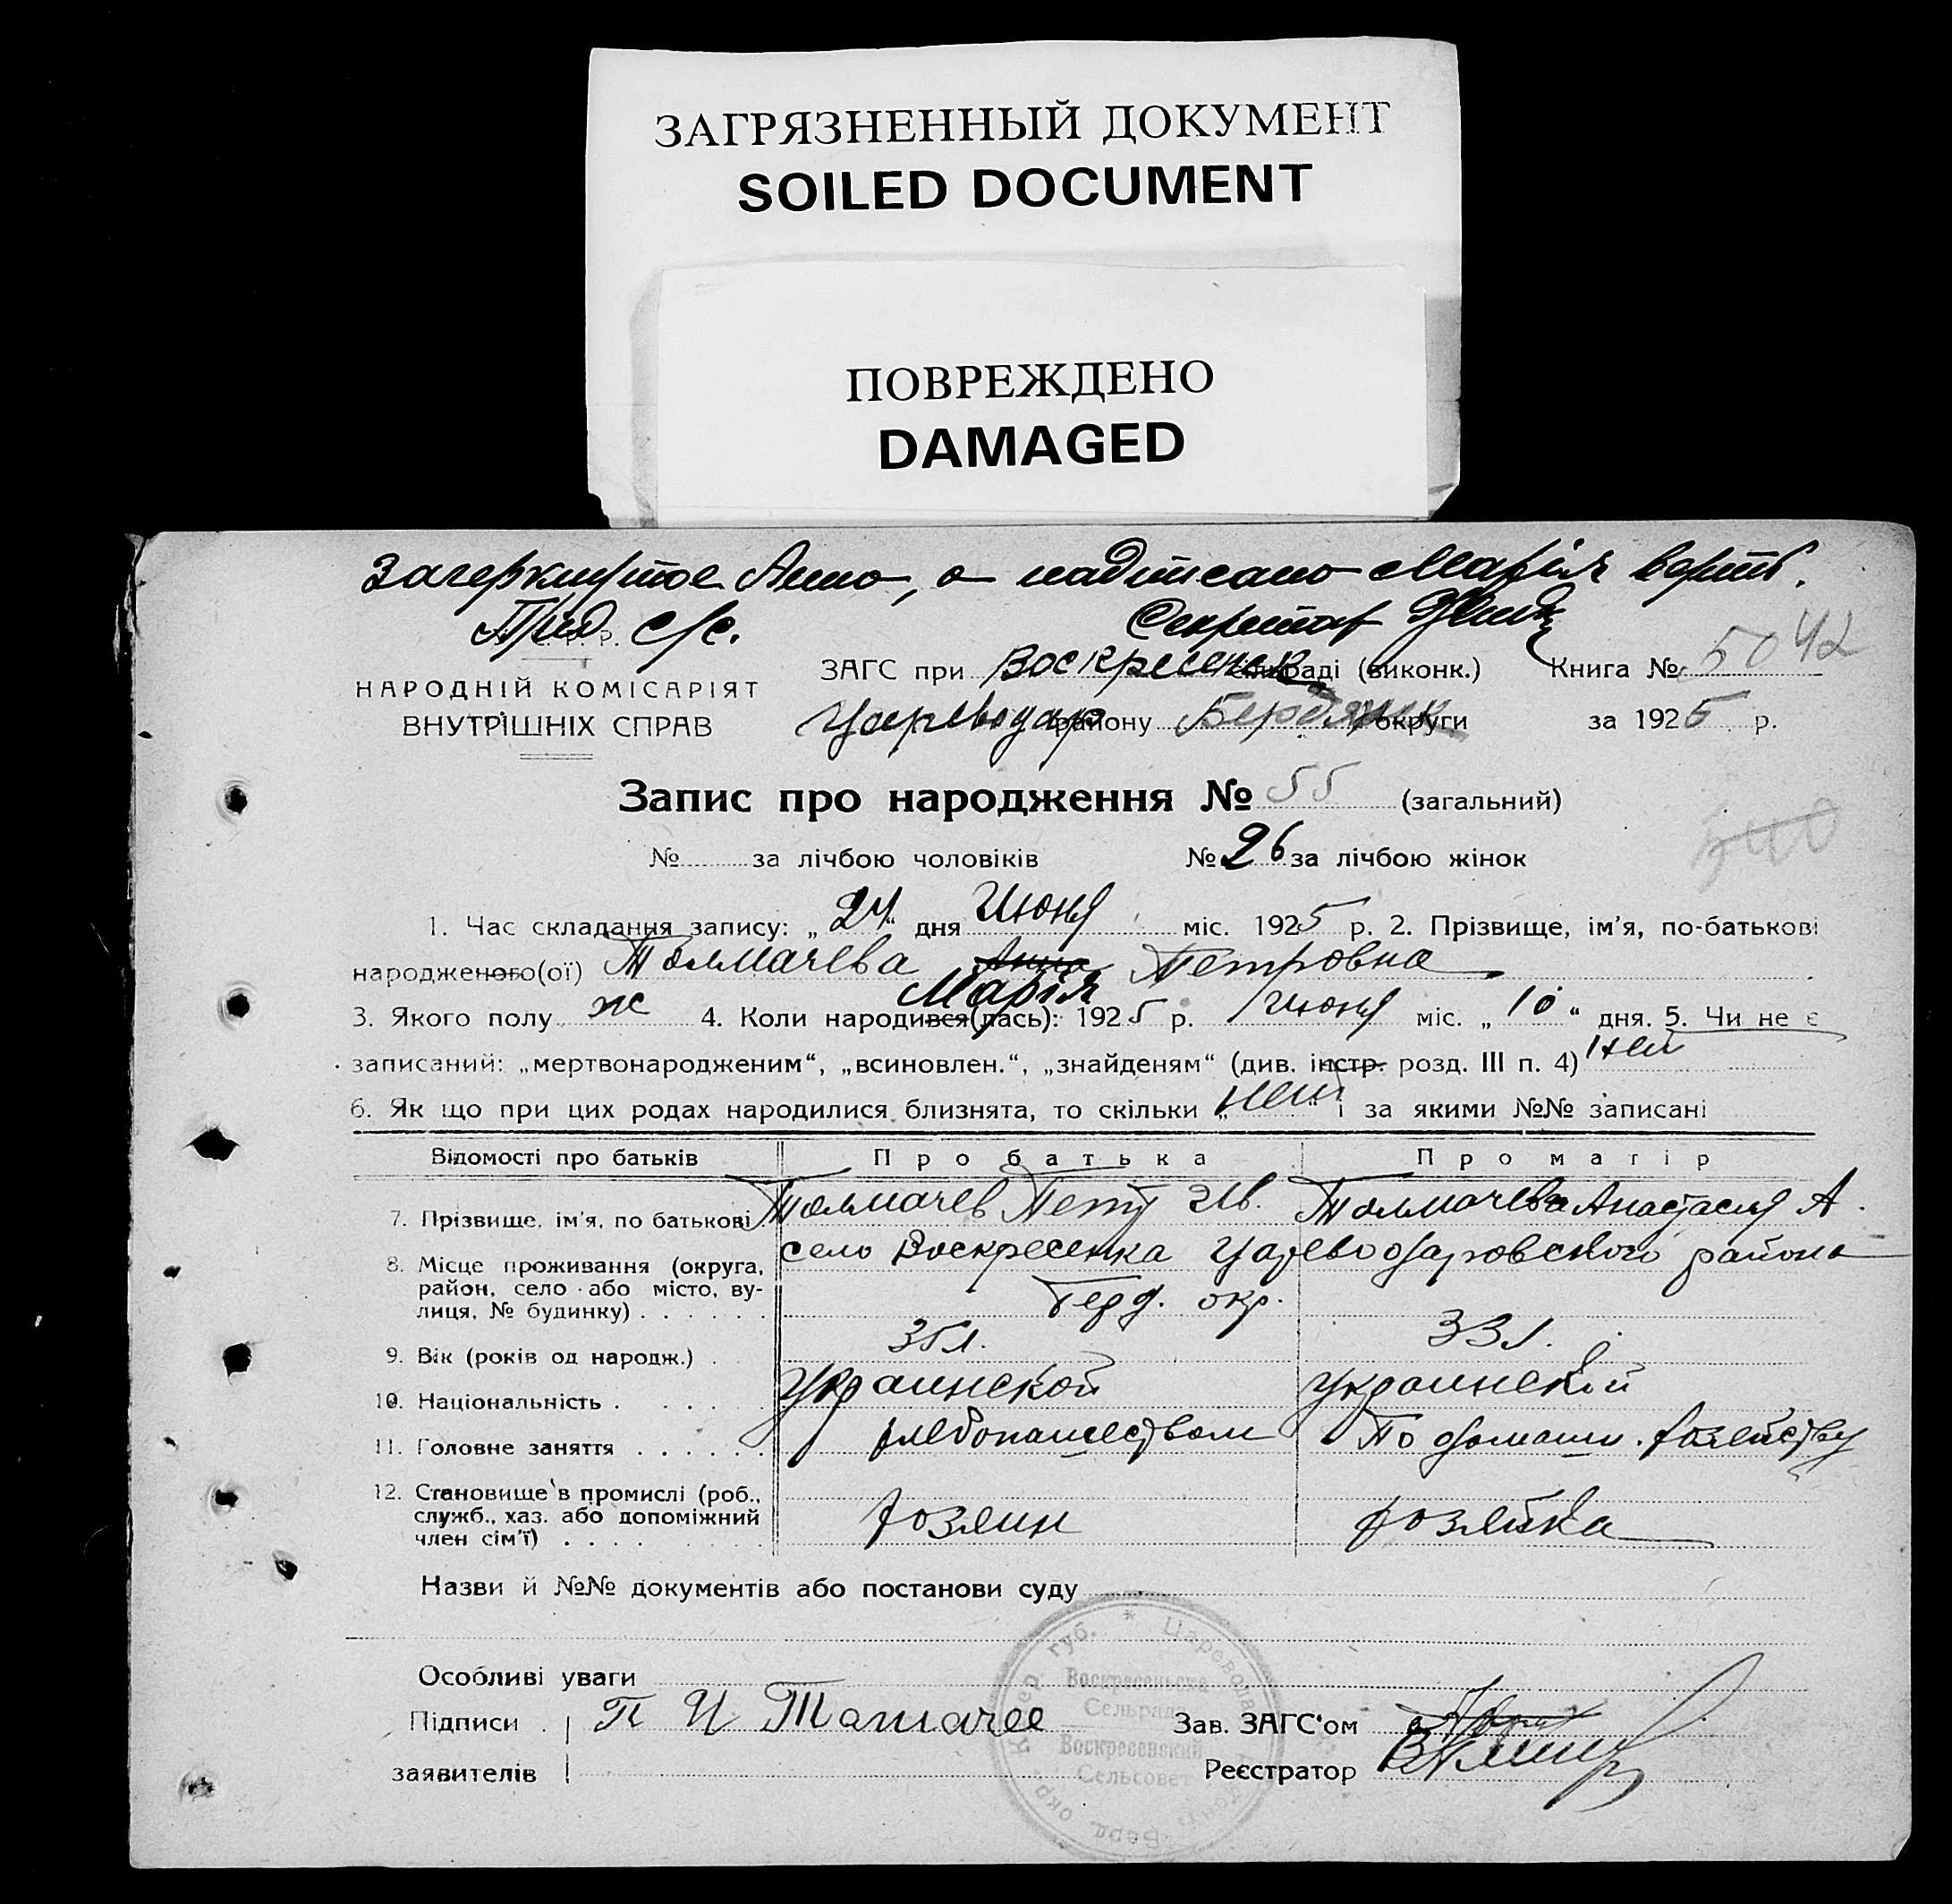 ЗАГРЯЗНЕННЫЙ ДОКУМЕНТ
SOILED DOCUMENT
ПОВРЕЖДЕНО
DAMAGED
Зачеркнутое Анна, а надписано Марія верить.
Пред с/с. Секретар
ЗАГС при Воскресенск сільраді (виконк.) Книга № 5042
НАРОДНІЙ КОМІСАРІЯТ
ВНУТРІШНІХ СПРАВ
Цареводар району Бердянск округи за 1925 р.
Запис про народження № 55 (загальний)
№ за лічбою чоловіків № 26 за лічбою жінок
1. Час складання запису: „24“ дня Июня міс. 1925 р. 2. Прізвище, ім'я, по-батькові
народженого(ої) Толмачева Анна Петровна
Марія
3. Якого полу ж 4. Коли народився(лась): 1925 р. Июня міс. „10“ дня. 5. Чи не є
записаний: „мертвонародженим“, „всиновлен.“, „знайденям“ (див. інстр. розд. III п. 4) Нет
6. Як що при цих родах народилися близнята, то скільки „нет“ і за якими №№ записані
Відомості про батьків Про батька Про матір
7. Прізвище, ім'я, по батькові Толмачев Петр Ив. Толмачева Анастасия А.
8. Місце проживання (округа, село Воскресенка Цареводаровского района
район, село або місто, ву-
лиця, № будинку) Берд. окр.
9. Вік (років од народж.) 35 л. 33 л.
10. Національність украинской украинской
11. Головне заняття хлебопашеством По домашн. хозяйству
12. Становище в промислі (роб.,
служб., хаз. або допоміжний хозяин хозяйка
член сім'ї)
Назви й №№ документів або постанови суду
Особливі уваги
Підписи П И Толмачев Зав. ЗАГС'ом
заявителів Реєстратор
Воскресеньска
Сельрада
Воскресенский
Сельсовет